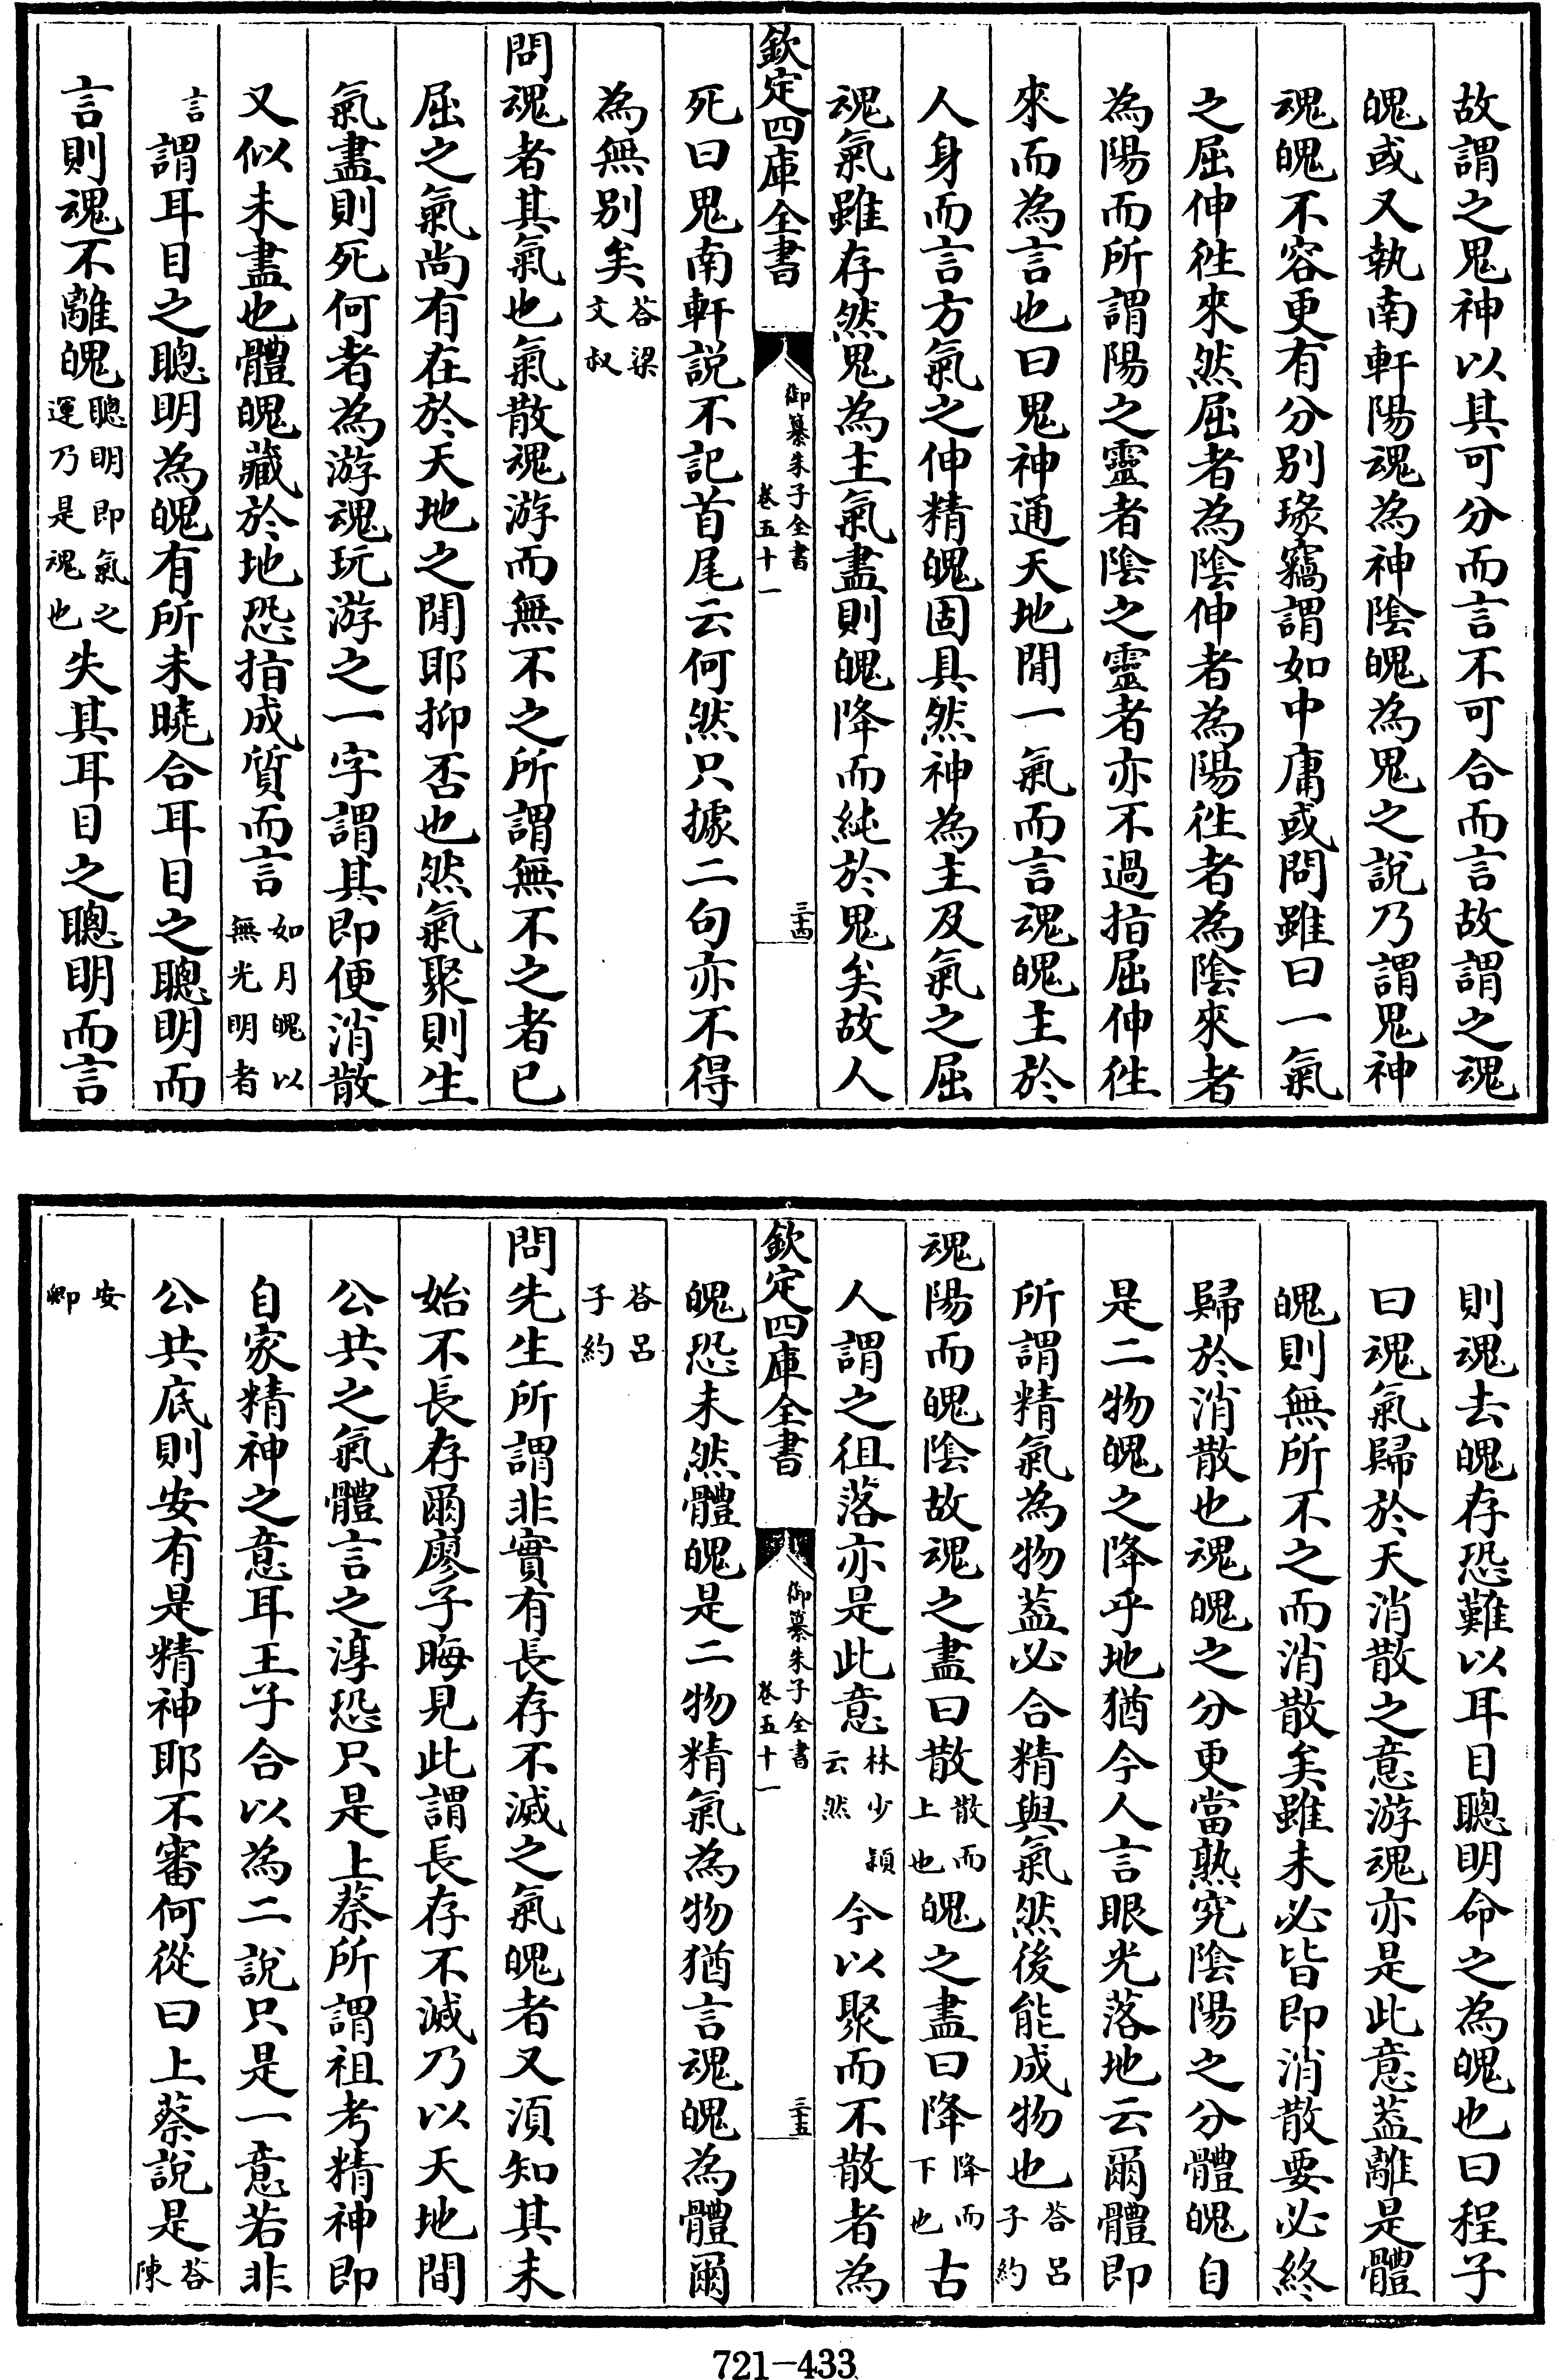 故謂之鬼神以其可分而言不可合而言故謂之魂
魄或又執南軒陽魂為神陰魄為鬼之說乃謂鬼神
魂魄不容更有分別瑑竊謂如中庸或問雖曰一氣
之屈伸徃來然屈者為陰伸者為陽徃者為陰來者
為陽而所謂陽之靈者陰之靈者亦不過指屈伸徃
來而為言也曰鬼神通天地閒一氣而言魂魄主於
人身而言方氣之伸精魄固具然神為主及氣之屈
魂氣雖存然鬼為主氣盡則魄降而純於鬼矣故人
欽定四庫全書
御纂朱子全書
卷五十一
三十四
死曰鬼南軒說不記首尾云何然只據二句亦不得
為無別矣答梁文叔
問魂者其氣也氣散魂游而無不之所謂無不之者已
屈之氣尚有在於天地之閒耶抑否也然氣聚則生
氣盡則死何者為游魂玩游之一字謂其即便消散
又似未盡也體魄藏於地恐指成質而言如月魄以無光明者
言謂耳目之聰明為魄有所未曉合耳目之聰明而
言則魂不離魄聰明即氣之運乃是魂也失其耳目之聰明而言
則魂去魄存恐難以耳目聰明命之為魄也曰程子
曰魂氣歸於天消散之意游魂亦是此意蓋離是體
魄則無所不之而消散矣雖未必皆即消散要必終
歸於消散也魂魄之分更當熟究陰陽之分體魄自
是二物魄之降乎地猶今人言眼光落地云爾體即
所謂精氣為物蓋必合精與氣然後能成物也答呂子約
魂陽而魄陰故魂之盡曰散散而上也魄之盡曰降降而下也古
人謂之徂落亦是此意林少穎云然今以聚而不散者為
欽定四庫全書
御纂朱子全書
卷五十一
三十五
魄恐未然體魄是二物精氣為物猶言魂魄為體爾
答呂子約
問先生所謂非實有長存不滅之氣魄者又須知其未
始不長存爾廖子晦見此謂長存不滅乃以天地間
公共之氣體言之淳恐只是上蔡所謂祖考精神即
自家精神之意耳王子合以為二說只是一意若非
公共底則安有是精神耶不審何從曰上蔡說是答陳
安卿
721-433